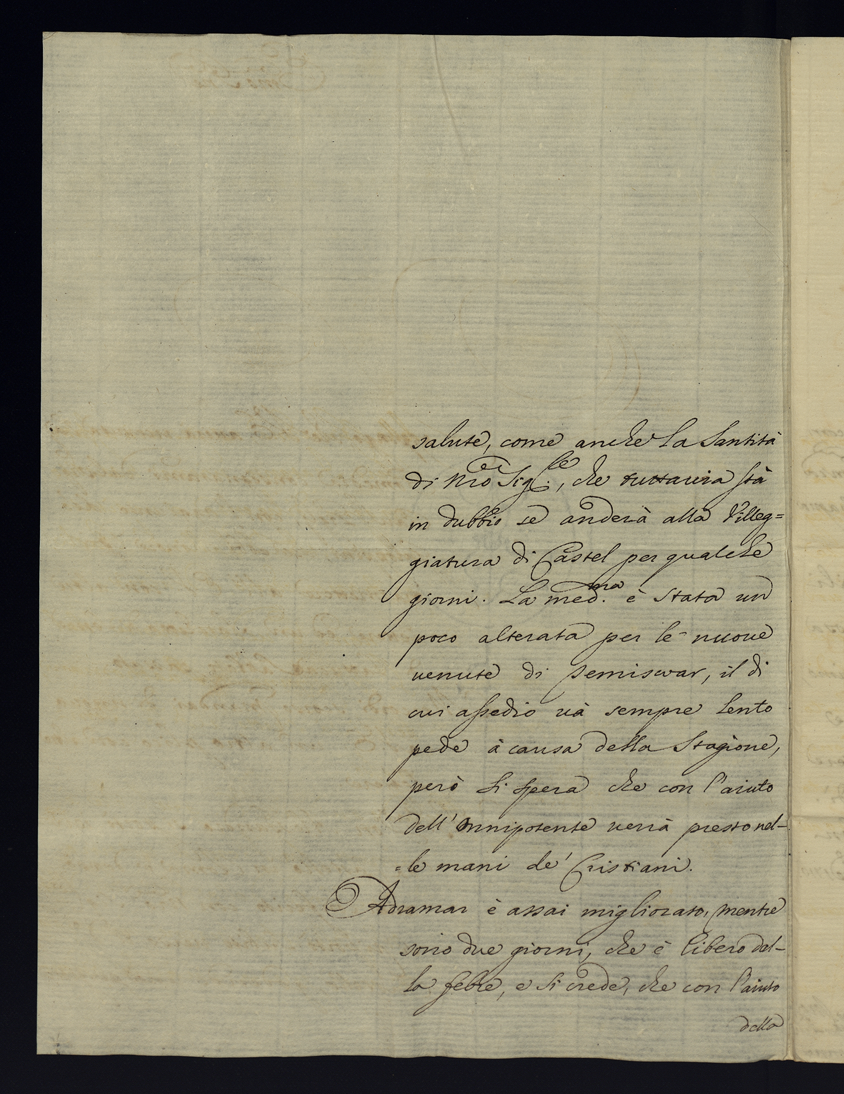 salute, come anche la Santità
di Nro Sig.re, che tuttavia stà
in dubbio se anderà alla Villeg=
giatura di Castel per qualche
giorni. La med.ma è stata un
poco alterata per le nuove
venute di Temiswar, il di
cui assedio và sempre lento
pede à causa della Stagione,
però si spera che con l'aiuto
dell'Omnipotente verrà presto nel-
=le mani de' Cristiani.
Adramar è assai migliorato, mentre
sono due giorni, che è libero dal-
la febre, e si crede, che con l'aiuto
della